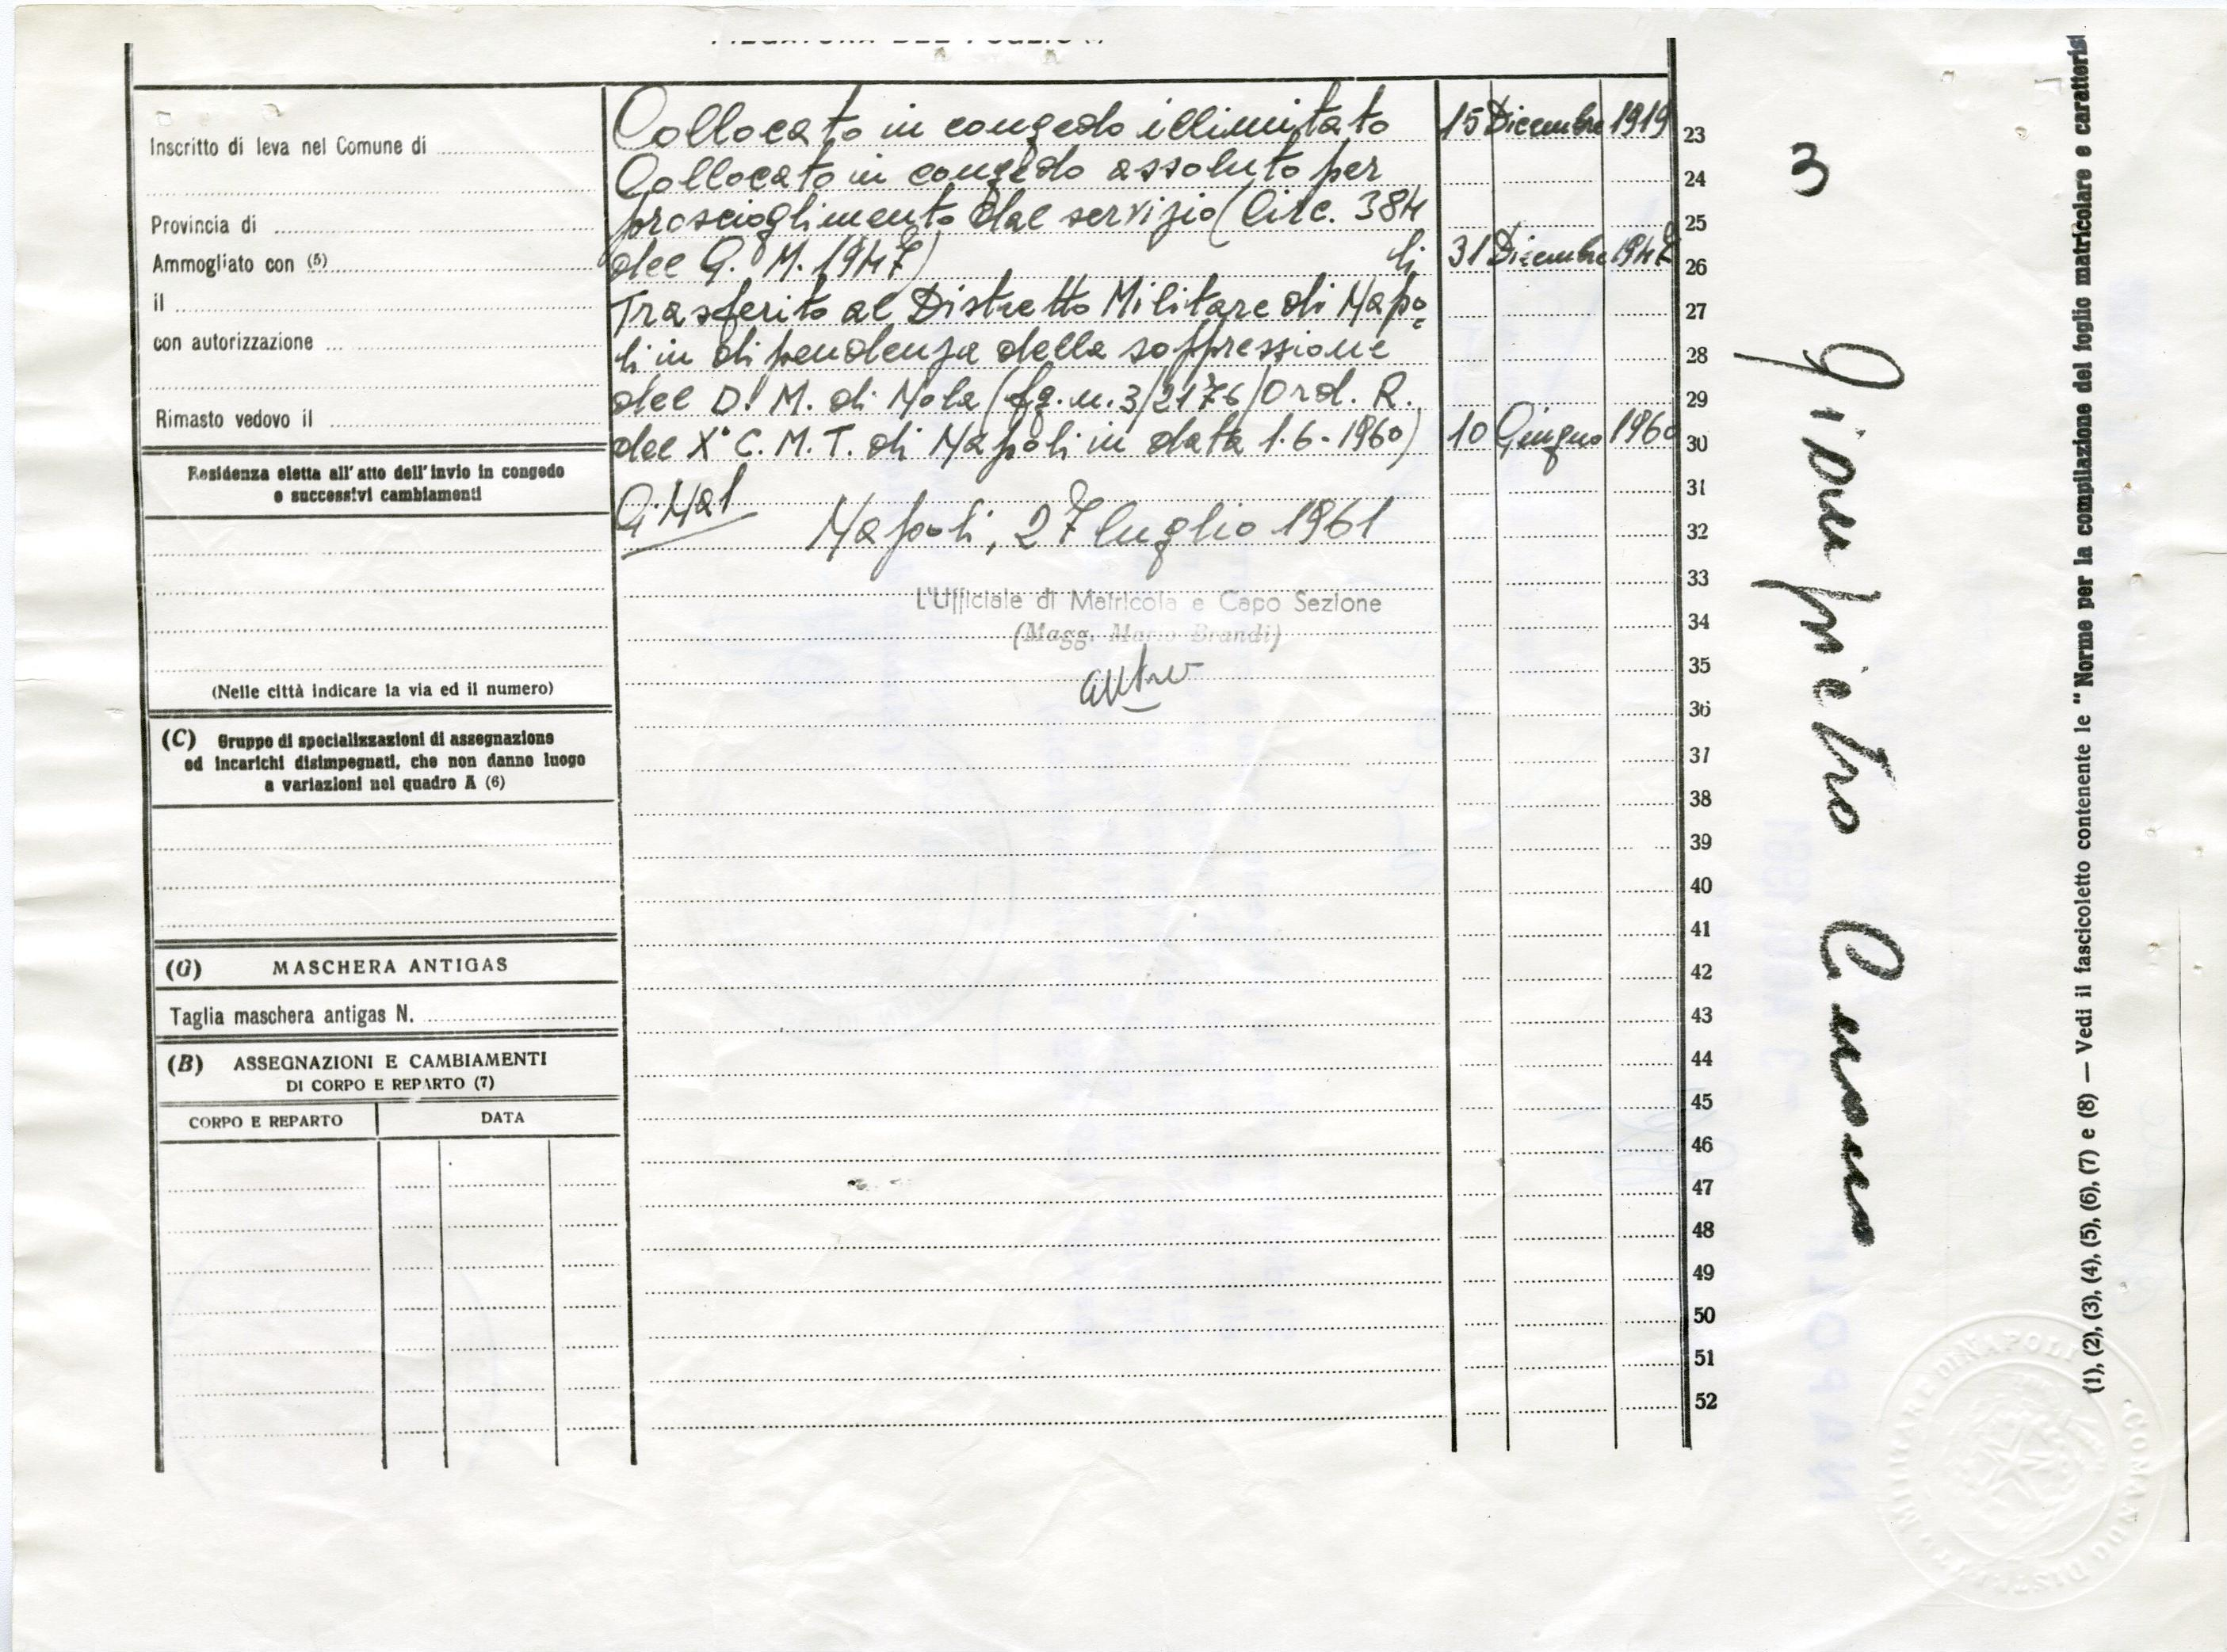 Inscritto di leva nel Comune di
Provincia di
Ammogliato con (5)
il
con autorizzazione
Rimasto vedovo il
Residenza eletta all'atto dell'invio in congedo
e successivi cambiamenti
(Nelle città indicare la via ed il numero)
(C) Gruppo di specializzazioni di assegnazione
ed incarichi disimpegnati, che non danno luogo
a variazioni nel quadro A (6)
(G) MASCHERA ANTIGAS
Taglia maschera antigas N.
(B) ASSEGNAZIONI E CAMBIAMENTI
DI CORPO E REPARTO (7)
CORPO E REPARTO DATA
Collocato in congedo illimitato 15 Dicembre 1919 23
Collocato in congedo assoluto per 24
proscioglimento dal servizio (Circ. 384 25
del G. M. 1947) li 31 Dicembre 1947 26
Trasferito al Distretto Militare di Napo 27
li in dipendenza della soppressione 28
del D. M. di Nola (fg. n. 3/2176/Ord. R. 29
del X° C. M. T. di Napoli in data 1-6-1960) 10 Giugno 1960 30
31
Napoli, 27 luglio 1961 32
L'Ufficiale di Matricola e Capo Sezione 33
(Magg. Mario Brandi) 34
35
36
37
38
39
40
41
42
43
44
45
46
47
48
49
50
51
52
3
Giampietro Cuono
(1), (2), (3), (4), (5), (6), (7) e (8) — Vedi il fascicoletto contenente le "Norme per la compilazione del foglio matricolare e caratteris
COMANDO DISTRETTO MILITARE DI NAPOLI